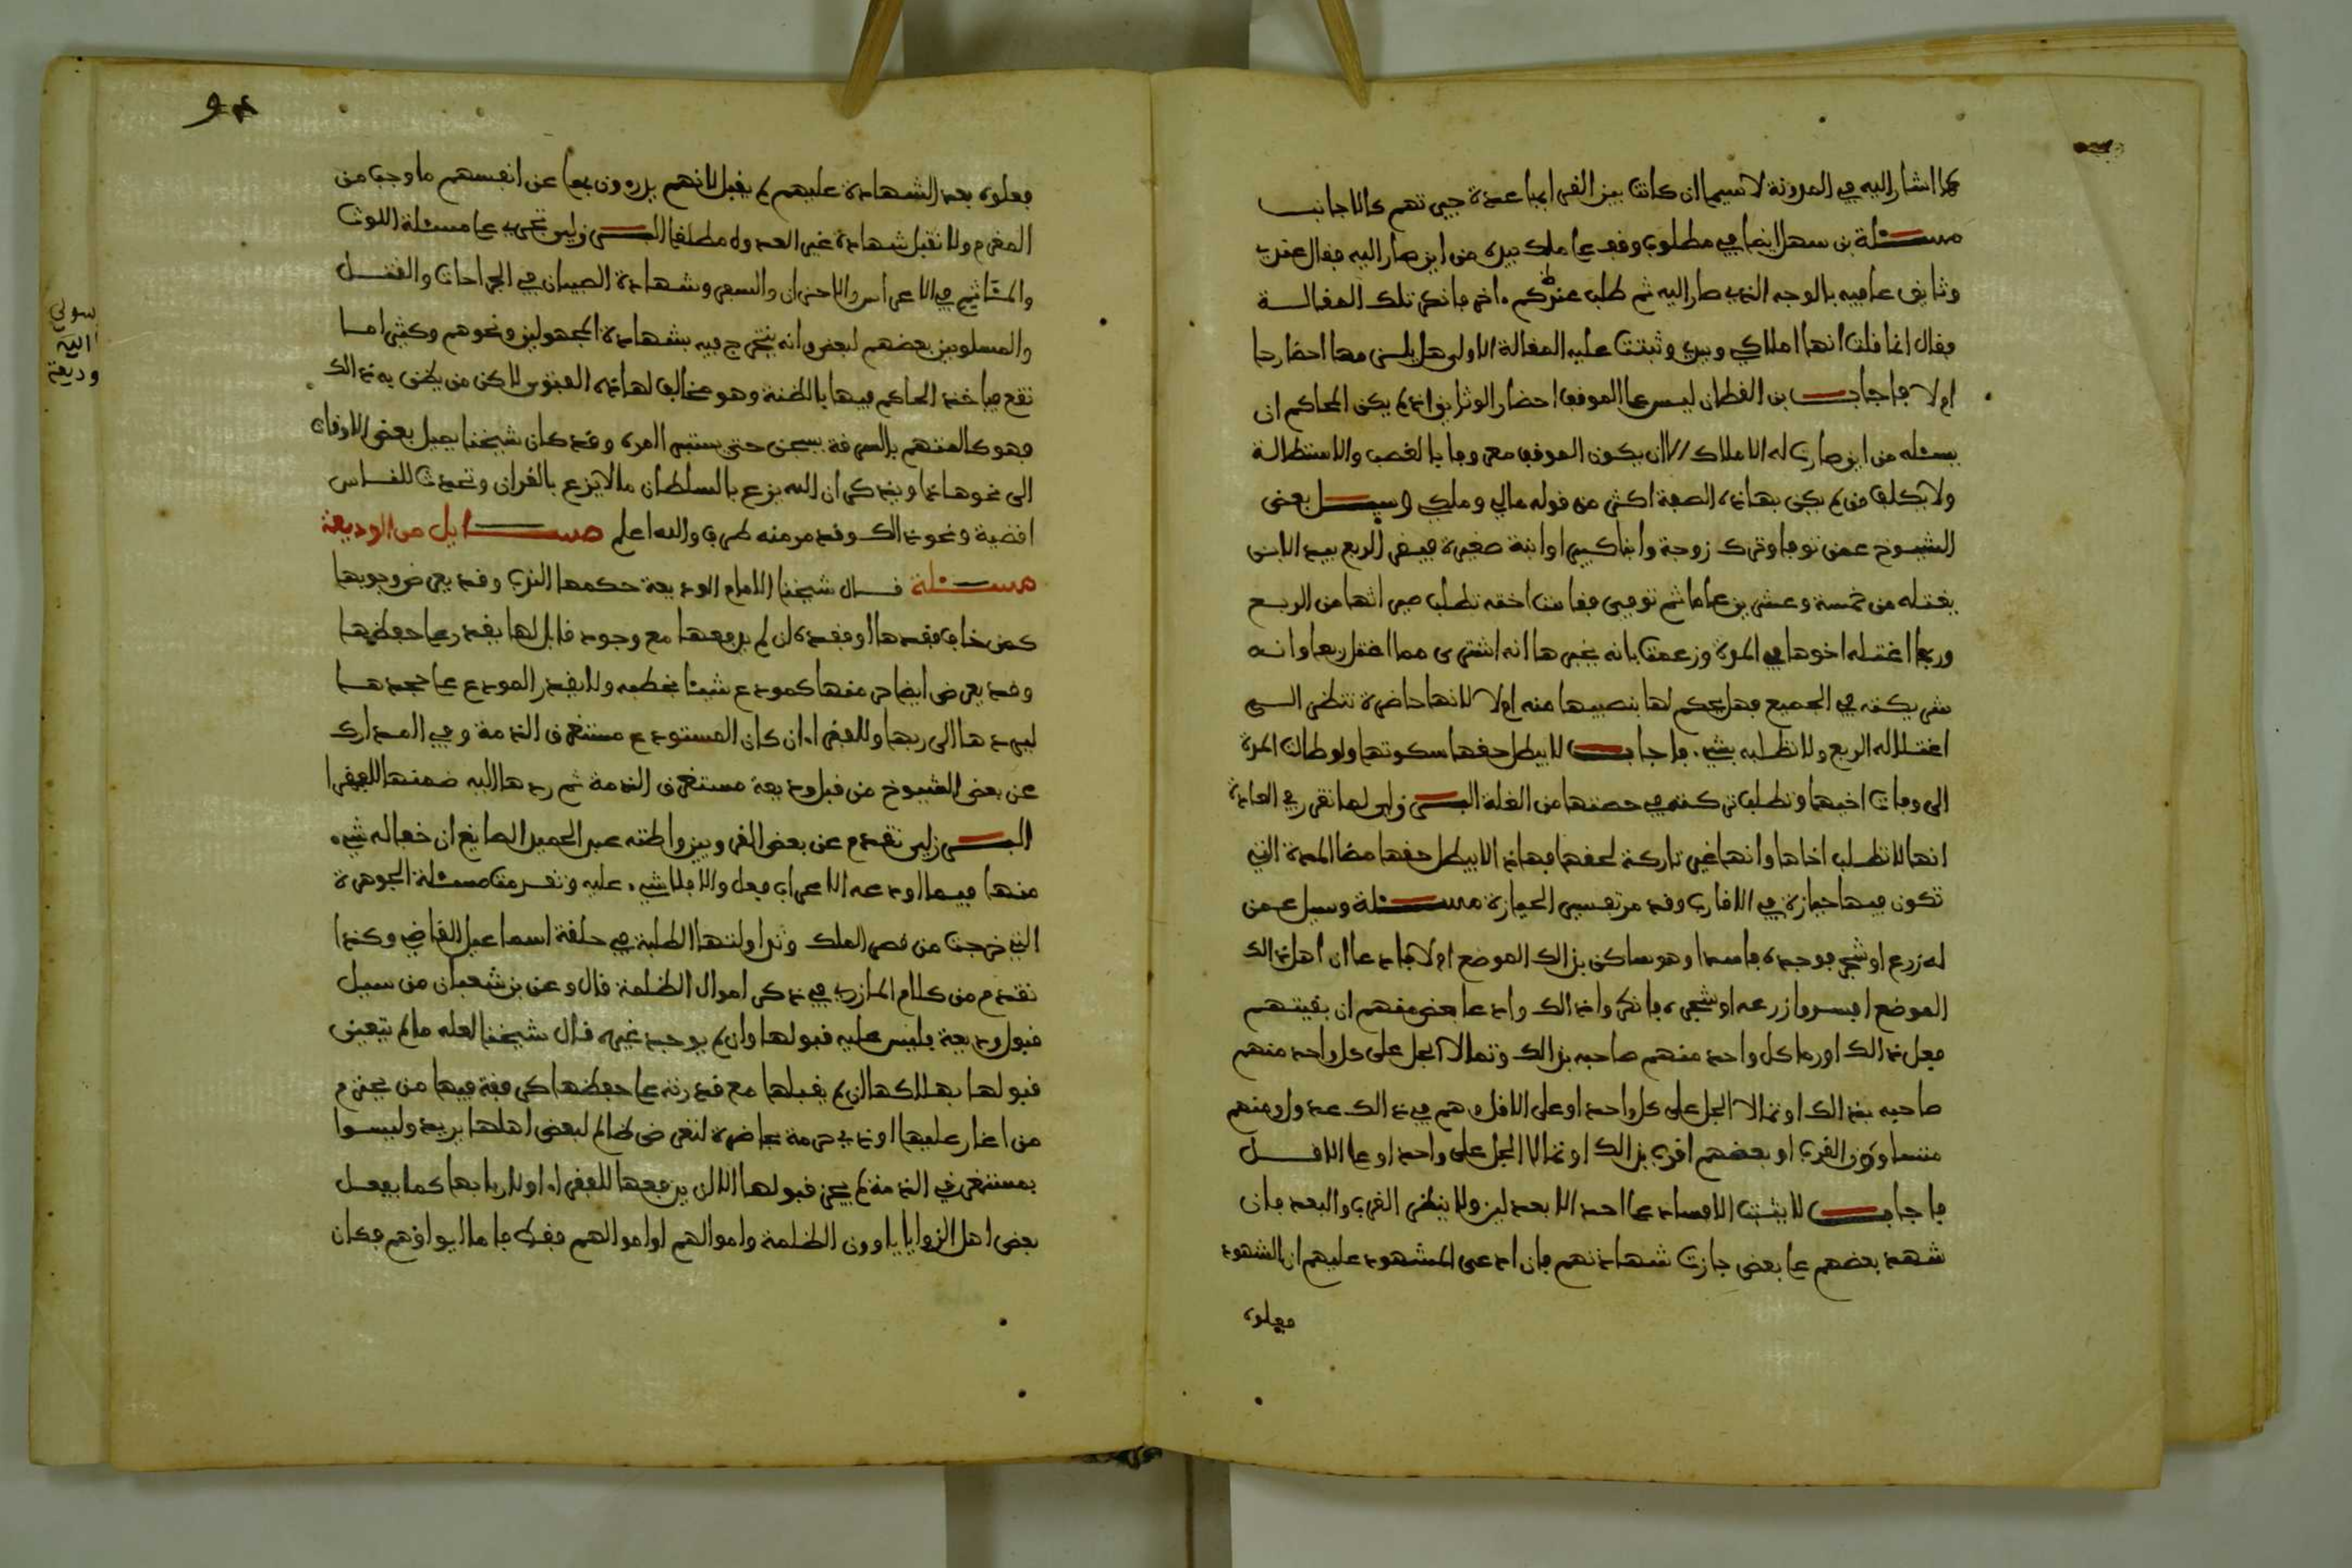 كما اشار اليه في المدونة لاسيما ان كانت بين القرابة عدة جيرتهم كالاجانب
مسئلة بن سهل ايضا في مطلوب وقف على ملك بيده من اين صار اليه فقال عندي
وثايق عا فيه بالوجه الذي صار اليه ثم طلب عند حكم اخر فانكر تلك المقالة
فقال انما قلت انها املاكي وبيدي وثبتت عليه المقالة الاولى هل يلزمه احضارها
ام لا فاجاب بن القطان ليس على الموقف احضار الوثايق اذ لم يكن للحاكم ان
يسئله من اين صارت له الاملاك الا ان يكون الموقف معروفا بالغصب والاستطالة
ولا يكلف من لم يكن بهاذه الصفة اكثر من قوله مالي وملكي وسيل بعض
الشيوخ عمن توفي وترك زوجة وابنا كبيرا وابنة صغيرة فبقي الربع بيد الابن
يغتله من خمسة وعشرين عاما ثم توفي فقامت اخته تطلب ميراثها من الربع
وربما اغتله اخوها في المدة وزعمت بانه يخبرها انه اشترى مما اغتل ربعا وانه
شريكته في الجميع فهل يحكم لها بنصيبها منه ام لا لانها حاضرة تنظر اليه
اغتلاله الربع ولا تطلبه بشيء فاجاب لا يبطل حقها سكوتها ولو طالت المدة
الى وفات اخيها وتطلب تركته في حصتها من الغلة البرزلي لما تقرر في العادة
انها لا تطلب اخاها وانها غير تاركة لحقها فهاذا لا يبطل حقها مضا المدة التي
تكون فيها حيازة في الاقارب وقد مر تفسير الحيازة مسئلة وسيل عمن
له زرع او شجر فوجده فاسدا وهو ساكن بذالك الموضع ام لا فادعا ان اهل ذالك
الموضع افسدوا زرعه او شجره فانكروا ذالك وادعا بعض منهم ان بقيتهم
فعل ذالك او رما كل واحد منهم صاحبه بذالك وتمالا الجل على كل واحد منهم
صاحبه بذالك او تمالا الجل على كل واحد او على الاقل وهم في ذالك عدول ومنهم
متساوون القرب او بعضهم اقرب بذالك او تمالا الجل على واحد او على الاقل
فاجاب لا يثبت الافساد على احد الا بعدلين ولا ينظر القرب والبعد فان
شهد بعضهم على بعض جازت شهادتهم فان ادعى المشهود عليهم ان الشهود
فعلوه
فعلوه بعد الشهادة عليهم لم يقبل لانهم يدرءون بها عن انفسهم ما وجب من
المغرم ولا تقبل شهادة غير العدول مطلقا البرزلي تجري على مسئلة اللوث
والمتاثيم في الاعراس والاحزان والسفر وشهادة الصبيان في الجراحات والقتل
والمسلوبين بعضهم لبعض وانه يتخرج فيه بشهادة المجهولين ونحوهم وكثيرا ما
تقع فياخذ الحاكم فيها بالظنة وهو مخالف لهاذه الفتوى لاكن من يظن به ذالك
فهو كالمتهم بالسرقة يسجن حتى يستبرى امره وقد كان شيخنا يميل بعض الاوقات
الى نحو هاذا ويذكر ان الله يزع بالسلطان ما لا يزع بالقران وتحدث للناس
اقضية ونحو ذالك وقد مر منه طرف والله اعلم مسايل من الوديعة
مسئلة قال شيخنا الامام الوديعة حكمها الندب وقد يعرض وجوبها
كمن خاف فقدها او فقده ان لم يدفعها مع وجود قابل لها يقدر على حفظها
وقد يعرض ايضا حرمتها كمودع شيئا غصبه ولا يقدر المودع على جحدها
ليردها الى ربها وللفقرا ان كان المستودع مستغرق الذمة وفي المدارك
عن بعض الشيوخ من قبل وديعة مستغرق الذمة ثم ردها اليه ضمنها للفقرا
البرزلي تقدم عن بعض القرويين واظنه عبد الحميد الصايغ ان خفا له شيء
منها فيما اودعه الاعراب فعل والا فلا شيء عليه وتقدمت مسئلة الجوهرة
التي خرجت من قصر الملك وتداولتها الطلبة في حلقة اسماعيل القاضي وكذا
تقدم من كلام المازري في ذكر اموال الظلمة قال وعن بن شعبان من سيل
قبول وديعة فليس عليه قبولها وان لم يوجد غيره قال شيخنا لعله ما لم يتعين
قبولها بهلاكها ان لم يقبلها مع قدرته على حفظها كرفقة فيها من يحترم
من اغار عليها او ذي حرمة بحاضرة لتعرض ظالم لبعض اهلها يريد وليسوا
بمستغرقي الذمة لم يجز قبولها الا ان يدفعها للفقرا او لاربابها كما يفعل
بعض اهل الزوايا ياوون الظلمة واموالهم او اموالهم فقط فاما ايواؤهم فكان
سولي
اليه
وديعة